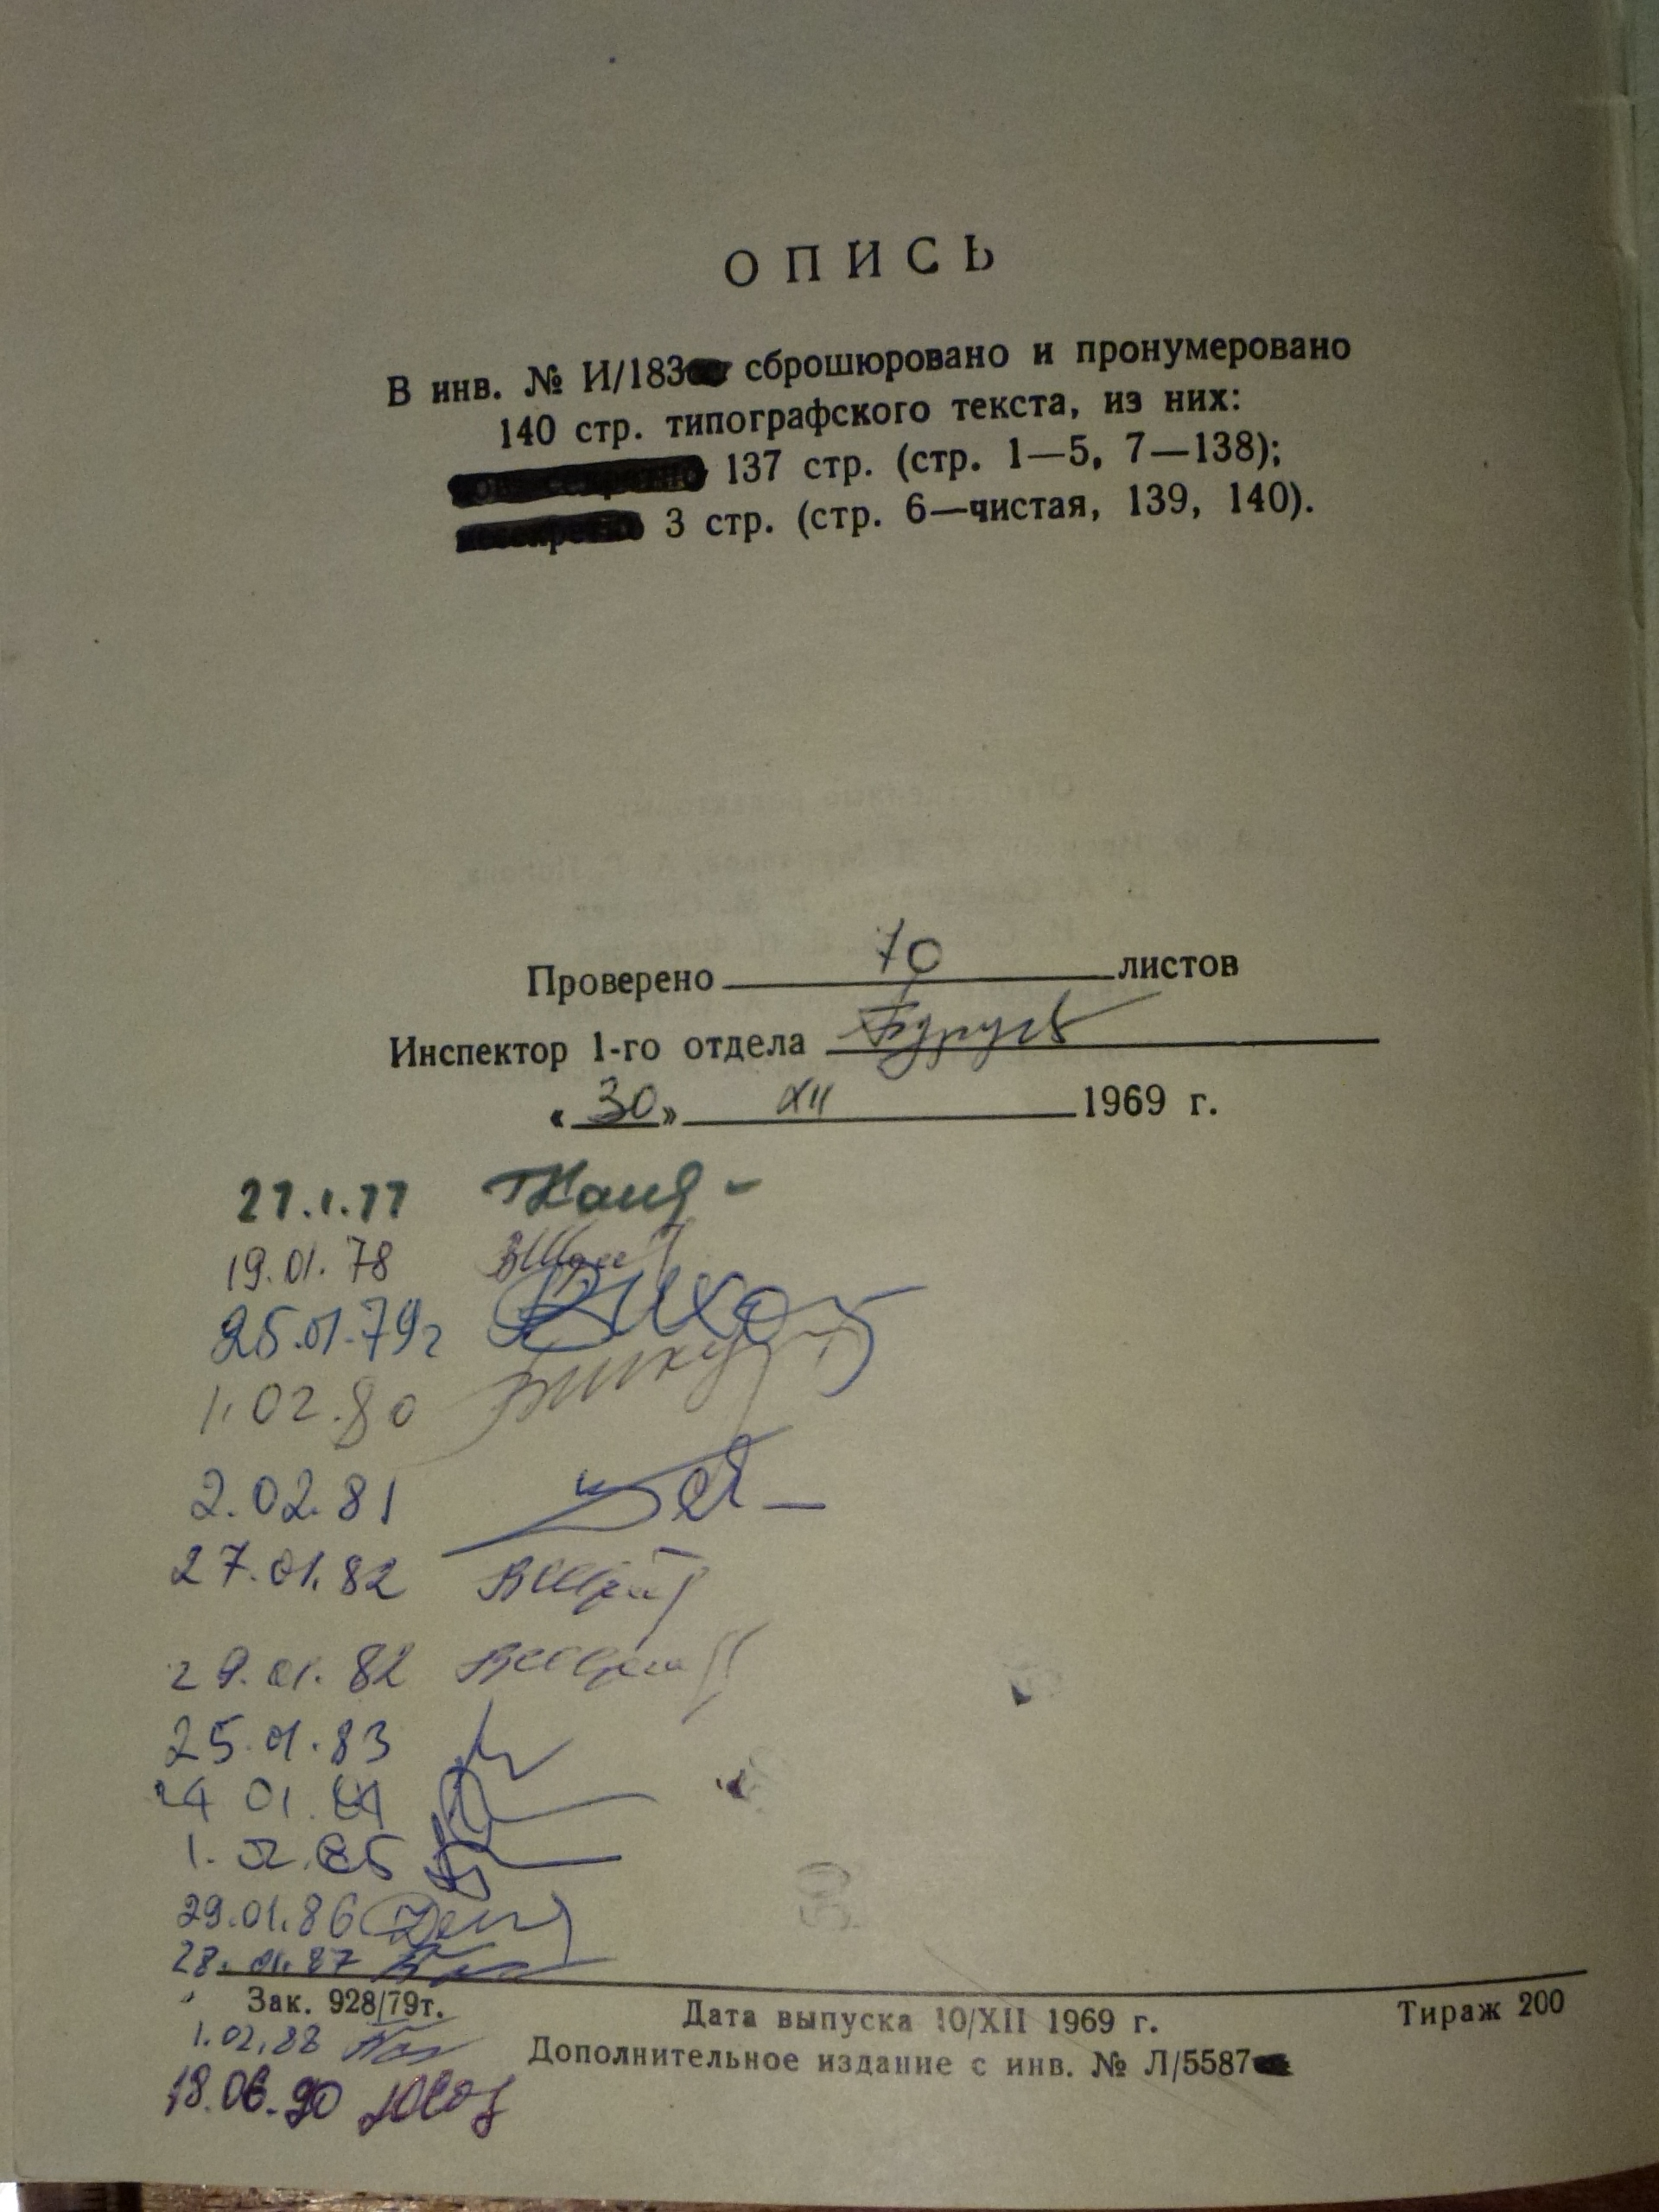 ОПИСЬ
В инв. № И/183 сброшюровано и пронумеровано
140 стр. типографского текста, из них:
137 стр. (стр. 1—5, 7—138);
3 стр. (стр. 6—чистая, 139, 140).
Проверено 70 листов
Инспектор 1-го отдела
«30» XII 1969 г.
27.1.77
19.01.78
25.01.79г
1.02.80
2.02.81
27.01.82
29.01.82
25.01.83
24 01.84
1.02.85
29.01.86
28.01.87
Зак. 928/79т. Дата выпуска 10/XII 1969 г. Тираж 200
1.02.88 Дополнительное издание с инв. № Л/5587
18.06.90